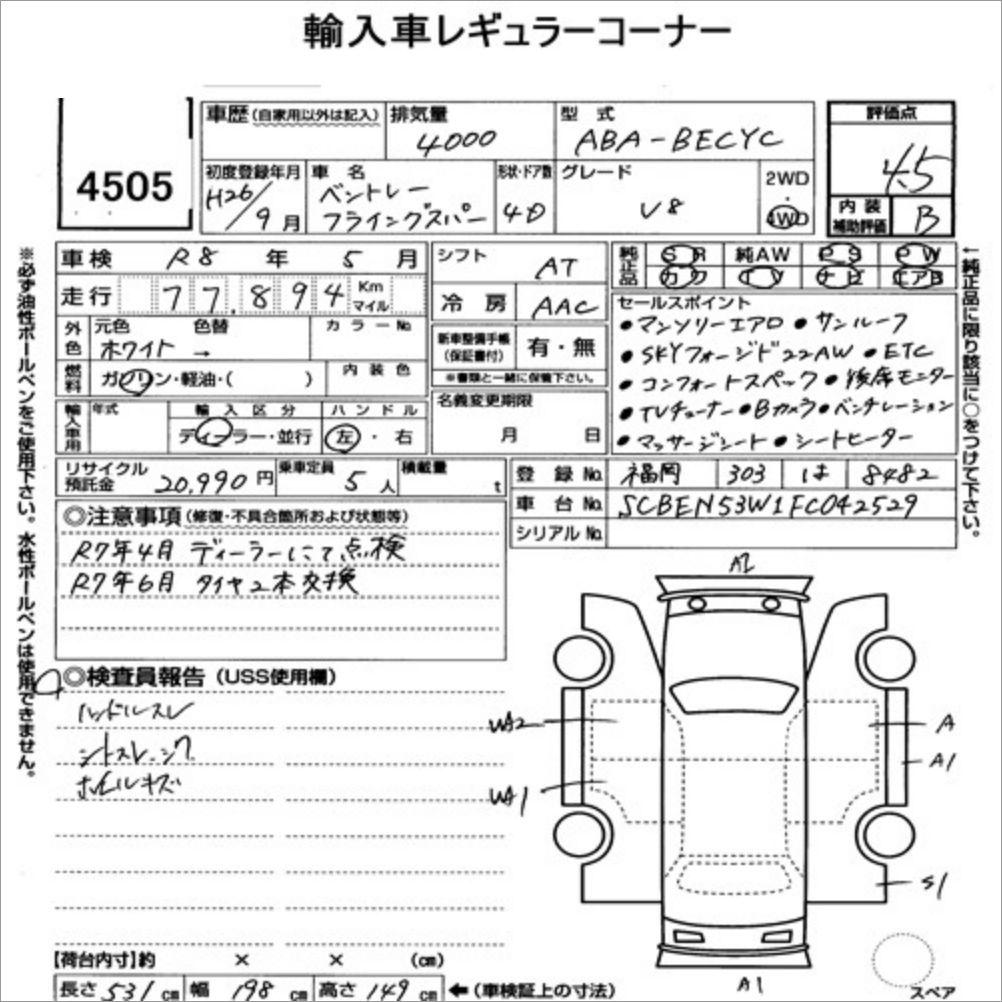 輸入車レギュラーコーナー
4505
車歴(自家用以外は記入)
排気量
4000
型 式
ABA-BECYC
評価点
4.5
初度登録年月
H26/9月
車 名
ベントレー
フライングスパー
形状・ドア数
4D
グレード
V8
2WD
・
4WD
内 装
補助評価
B
車検 R8 年 5 月
走行 77,894 Km
マイル
シフト AT
冷 房 AAC
純正品
SR 純AW PS PW
カワ TV ナビ エアB
外色
元色 色替
ホワイト →
カラーNo
燃料
ガソリン・軽油・( )
内 装 色
新車整備手帳
(保証書付)
有・無
※書類と一緒に保管下さい。
セールスポイント
●マンソリーエアロ ●サンルーフ
●SKYフォージド22AW ●ETC
●コンフォートスペック ●後席モニター
●TVチューナー ●Bカメラ ●ベンチレーション
●マッサージシート ●シートヒーター
輸入車用
年式
輸 入 区 分
ディーラー・並行
ハ ン ド ル
左 ・ 右
名義変更期限
月 日
リサイクル
預託金
20,990円
乗車定員
5人
積載量
t
登 録 No. 福岡 303 は 8482
車 台 No. SCBEN53W1FC042529
シリアル No.
◎注意事項(修復・不具合箇所および状態等)
R7年4月 ディーラーにて点検
R7年6月 タイヤ2本交換
◎検査員報告(USS使用欄)
ハンドルスレ
シートスレ・シワ
ホイールキズ
A2
UA2
UA1
A
A1
S1
A1
スペア
【荷台内寸】約 × × (cm)
長さ531cm 幅 198cm 高さ149cm
←(車検証上の寸法)
※必ず油性ボールペンをご使用下さい。水性ボールペンは使用できません。
←純正品に限り該当に○をつけて下さい。